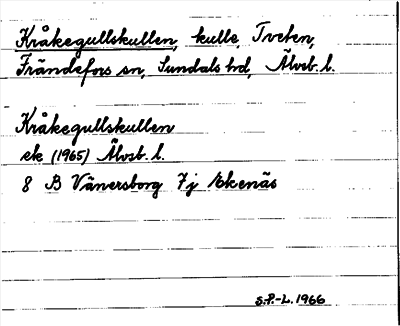 Kråkegullskullen, kulle, Tveten,
Frändefors sn, Sundals hd, Älvsb. l.
Kråkegullskullen
ek (1965) Älvsb. l.
8 B Vänersborg 7j Ekenäs
S.P.-L. 1966